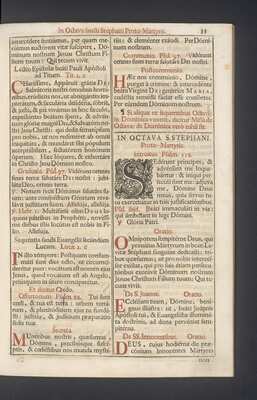 In Octava sancti Stephani Proto-Martyris. 33
intercedere sentiamus, per quam meruimus auctorem vitæ suscipere, Dominum nostrum Jesum Christum Filium tuum: Qui tecum vivit.
Lectio Epistolæ beati Pauli Apostoli
ad Titum.
CHarissime, Apparuit gratia Dei
Salvatoris nostri omnibus hominibus, erudiens nos, ut abnegantes impietatem, & sæcularia desideria, sobriè,
& juste, & pie vivamus in hoc sæculo,
expectantes beatam spem, & adventum gloriæ magni Dei, & Salvatoris nostri Jesu Christi: qui dedit semetipsum
pro nobis, ut nos redimeret ab omni
iniquitate, & mundaret sibi populum
acceptabilem, sectatorem bonorum
operum. Hæc loquere, & exhortare:
in Christo Jesu Domino nostro.
Graduale. Viderunt omnes
fines terræ salutare Dei nostri: jubilate Deo, omnis terra.
℣. Notum fecit Dominus salutare suum: ante conspectum Gentium revelavit justitiam suam. Alleluia, alleluia.
℣. Multifarie olim Deus loquens patribus in Prophetis, novissime diebus istis locutus est nobis in Filio. Alleluia.
Sequentia sancti Evangelii secundum
Lucam.
IN illo tempore: Postquam consummati sunt dies octo, ut circumcideretur puer: vocatum est nomen ejus
Jesus, quod vocatum est ab Angelo,
priusquam in utero conciperetur.
Et dicitur Credo.
Offertorium. Tui sunt
cæli, & tua est terra: orbem terrarum, & plenitudinem ejus tu fundasti: justitia, & judicium præparatio
sedis tuæ.
Secreta.
MUneribus nostris, quæsumus,
Domine, precibusque susceptis, & cælestibus nos munda mysteriis: & clementer exaudi. Per Dominum nostrum.
Communio. Viderunt
omnes fines terræ salutare Dei nostri.
Postcommunio.
HÆc nos communio, Domine,
purget à crimine: & intercedente
beata Virgine Dei genitrice MARIA,
cælestis remedii faciat esse consortes.
Per eumdem Dominum nostrum.
IN OCTAVA S. STEPHANI
Proto-Martyris.
Introitus.
SEderunt principes, &
adversum me loquebantur: & iniqui persecuti sunt me: adjuva
me, Domine Deus
meus, quia servus tuus exercebatur in tuis justificationibus.
Beati immaculati in via:
qui ambulant in lege Domini.
℣. Gloria Patri.
Oratio.
OMnipotens sempiterne Deus, qui
primitias Martyrum in beati Levitæ Stephani sanguine dedicasti: tribue, quæsumus, ut pro nobis intercessor existat, qui pro suis etiam persecutoribus exoravit Dominum nostrum
Jesum Christum Filium tuum: Qui tecum vivit.
De S. Joanne. Oratio.
ECclesiam tuam, Domine, benignus illustra: ut, beati Joannis
Apostoli tui, & Evangelistæ illuminata doctrinis, ad dona perveniat sempiterna.
De SS. Innocentibus. Oratio.
DEUS, cujus hodierna die præconium Innocentes Martyres